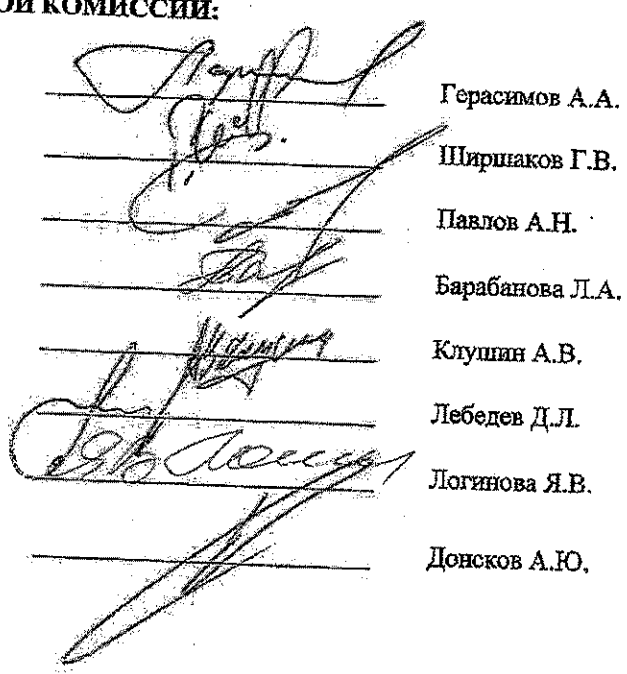 ОЙ КОМИССИИ:
Герасимов А.А.
Ширшаков Г.В.
Павлов А.Н.
Барабанова Л.А.
Клушин А.В.
Лебедев Д.Л.
Логинова Я.В.
Донсков А.Ю.